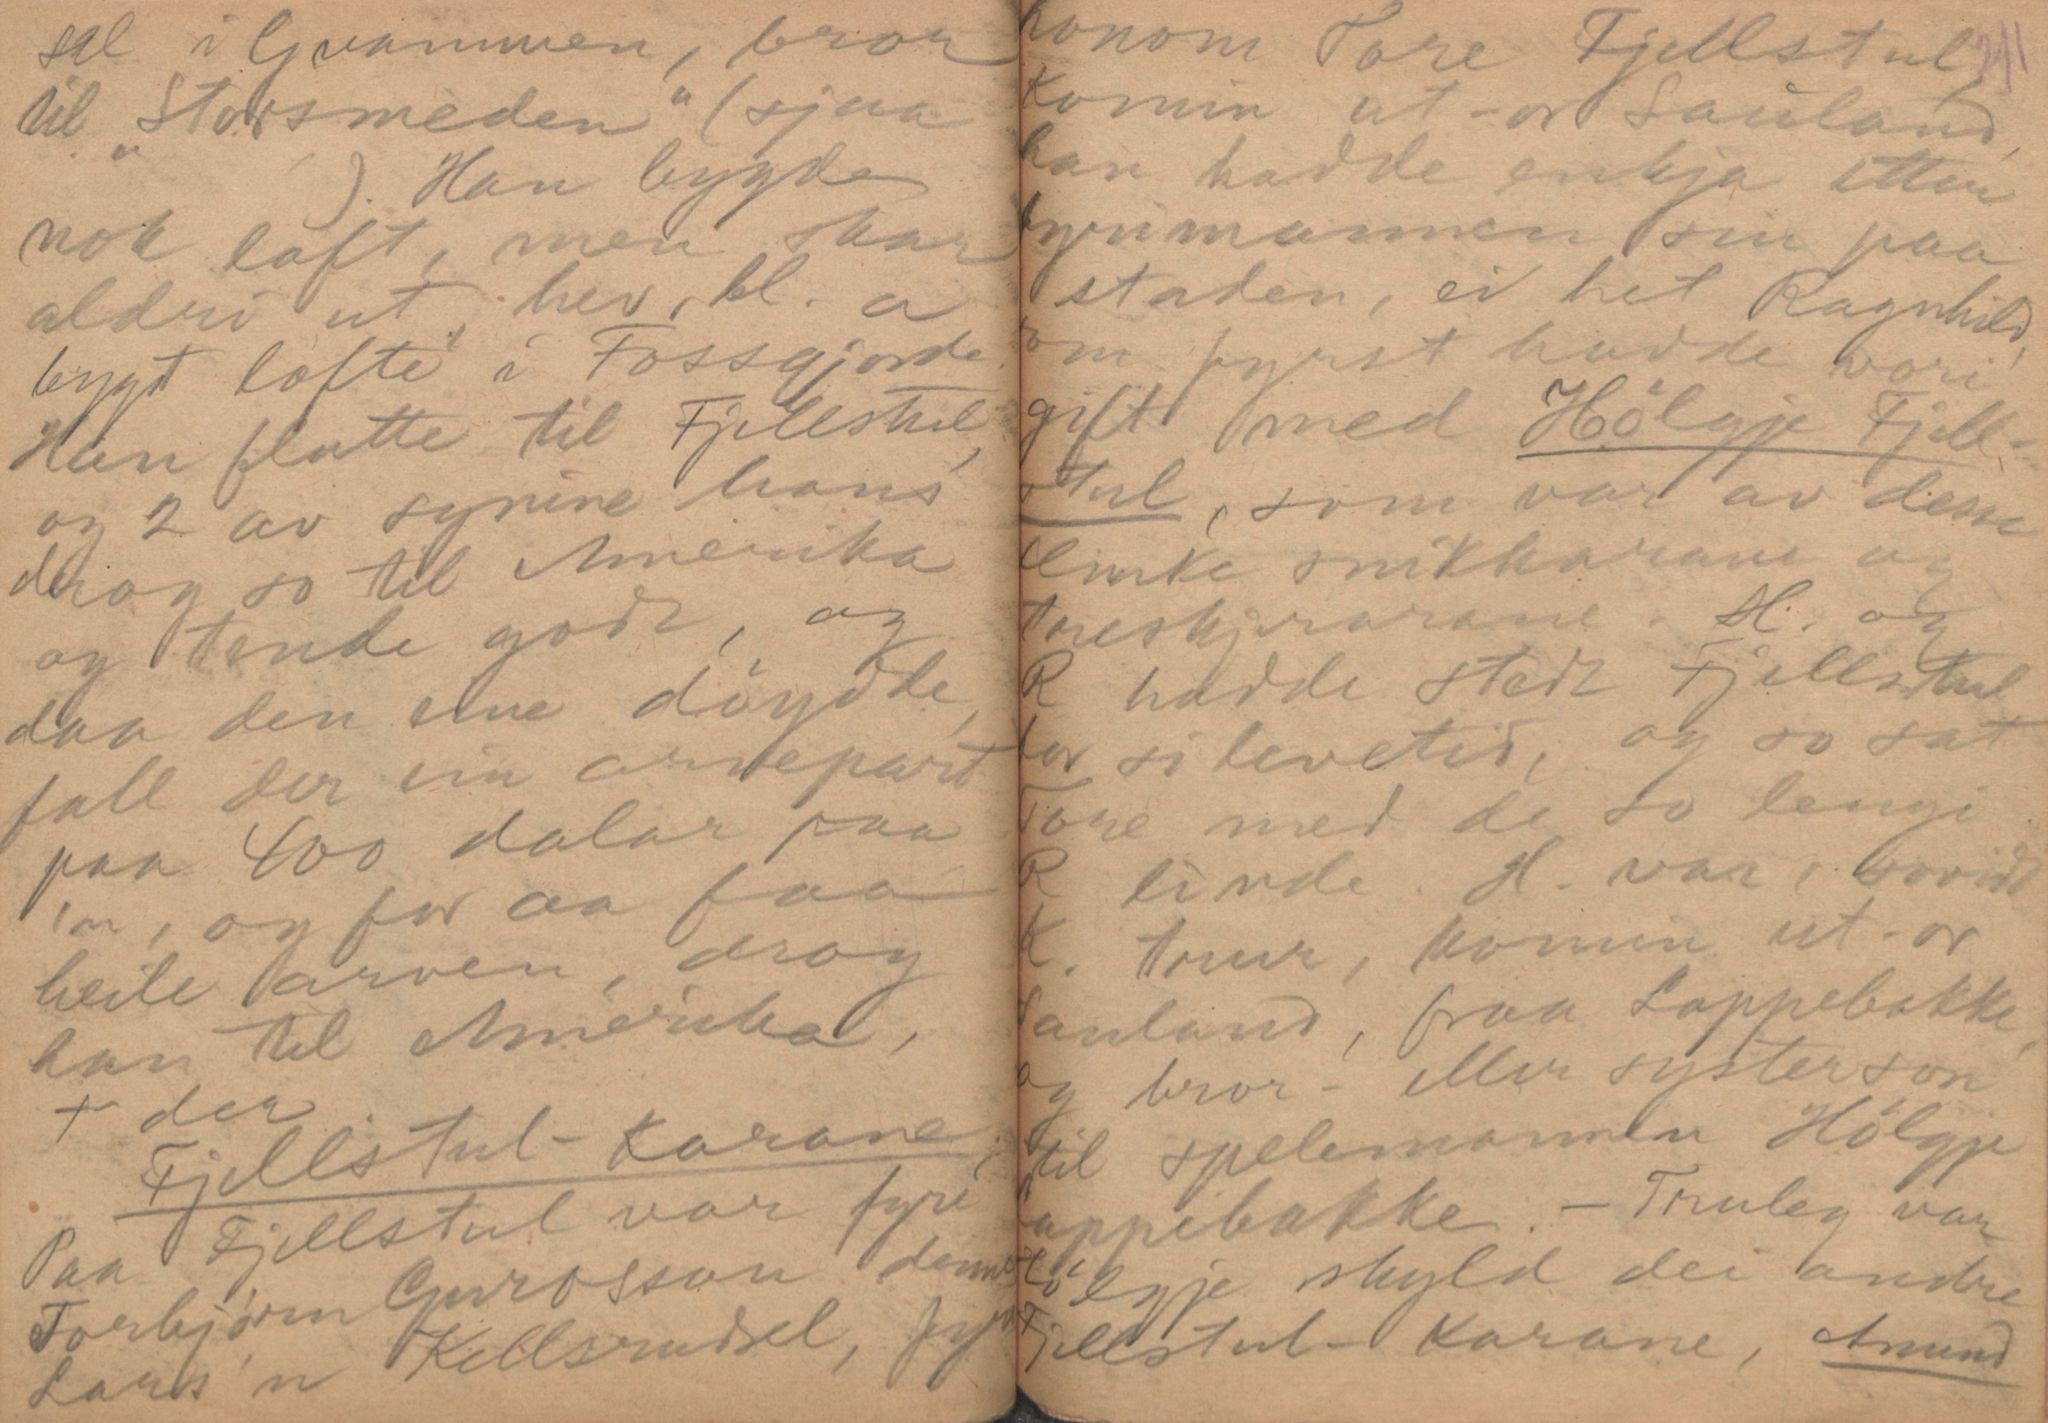 sel i Gvammen, bror
til "Storsmeden" (sjaa
" ). Han bygde
nok loft, men skar
aldri ut, hev, bl. a
bygt lofte i Fossgjorde.
Han flutte til Fjellstul,
og 2 av synine hans
drog so til Amerika
og tende godt, og
daa den eine döydde,
fall der ein arvepart
paa 400 dalar paa
'n, og for aa faa
heile arven, drog
han til Amerika,
+ der
Fjellstul-Karane.
Paa Fjellstul var fyri
Torbjörn Gurosson denne
Lars'n Kellsrudsel, fyri
honom Tore Fjellstul, 211
Komin ut-or Sauland,
han hadde enkja etter
fyrimannen sin paa
staden, ei het Ragnhild,
som fyrst hadde vori
gift med Hölgje Fjell-
stul, som var av desse
flinke snikkarane og
treskjerarane. H. og
R hadde stedt Fjellstul
for si levetid, og so sat
Tore med de so lengi
R livde. H. var, trur
K. trur, komin ut-or
Sauland, fraa Loppebakke,
og bror- eller systerson
til spelemannen Hölgje
Loppebakke. – Truleg var
Hölgje skyld dei andre
Fjellstul-Karane, Amund